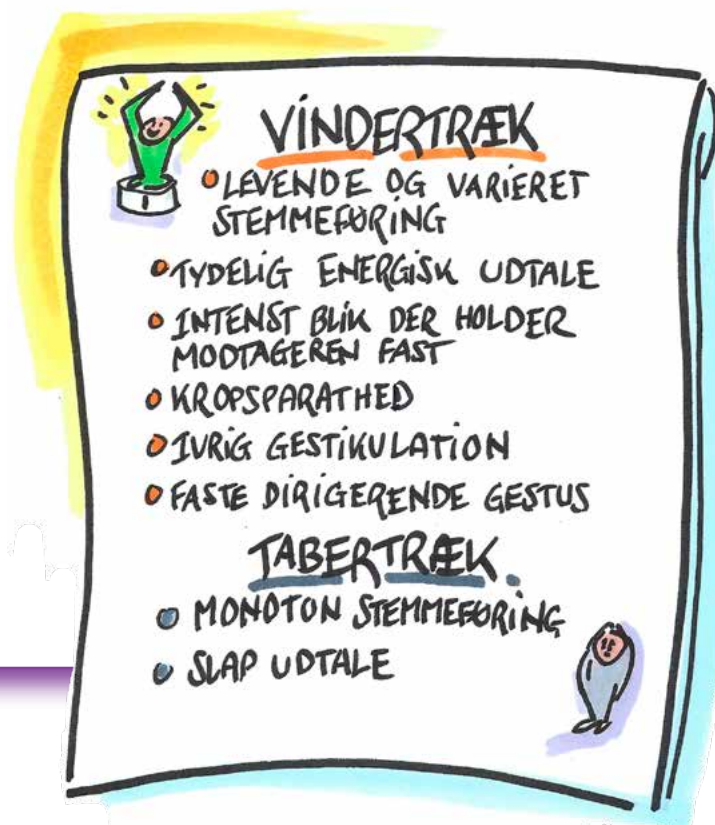 VINDERTRÆK
• LEVENDE OG VARIERET
STEMMEFØRING
• TYDELIG ENERGISK UDTALE
• INTENST BLIK DER HOLDER
MODTAGEREN FAST
• KROPSPARATHED
• IVRIG GESTIKULATION
• FASTE DIRIGERENDE GESTUS
TABERTRÆK.
• MONOTON STEMMEFØRING
• SLAP UDTALE
1